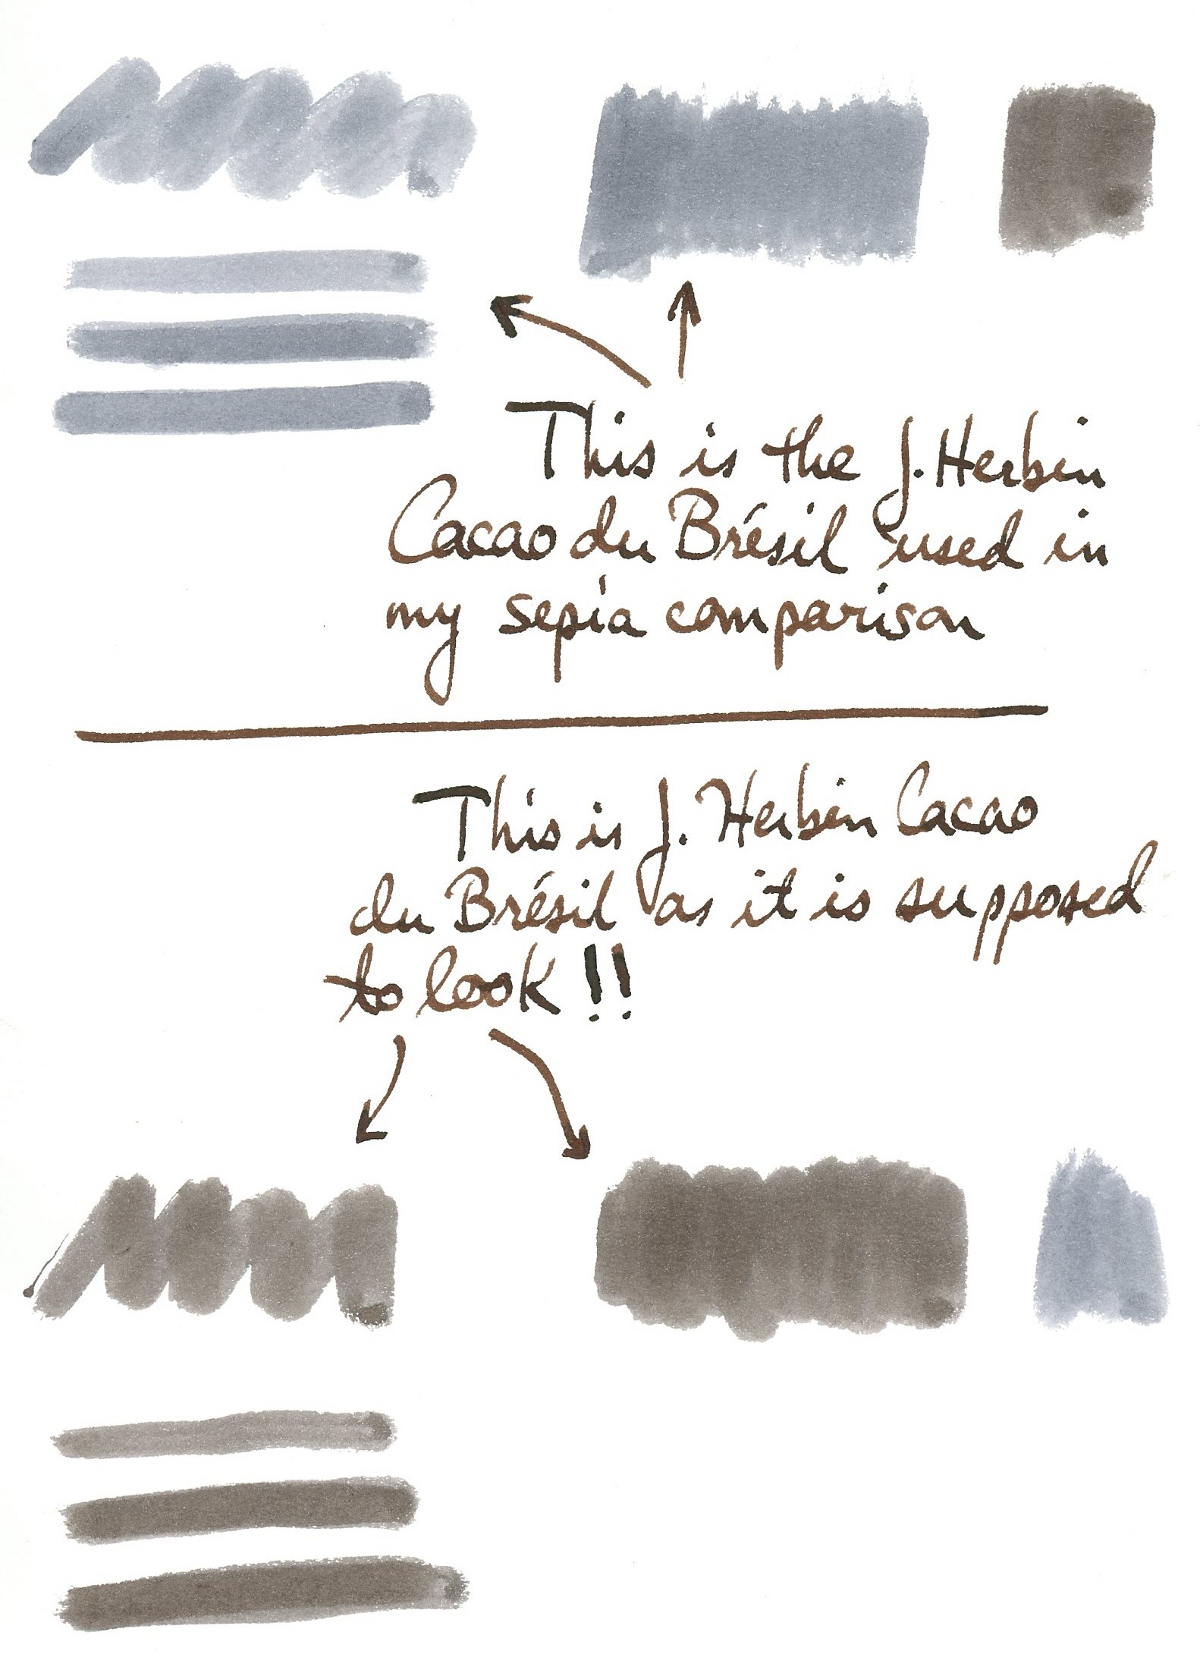 This is the J. Herbin
Cacao du Brésil used in
my sepia comparison
This is J. Herbin Cacao
du Brésil as it is supposed
to look!!